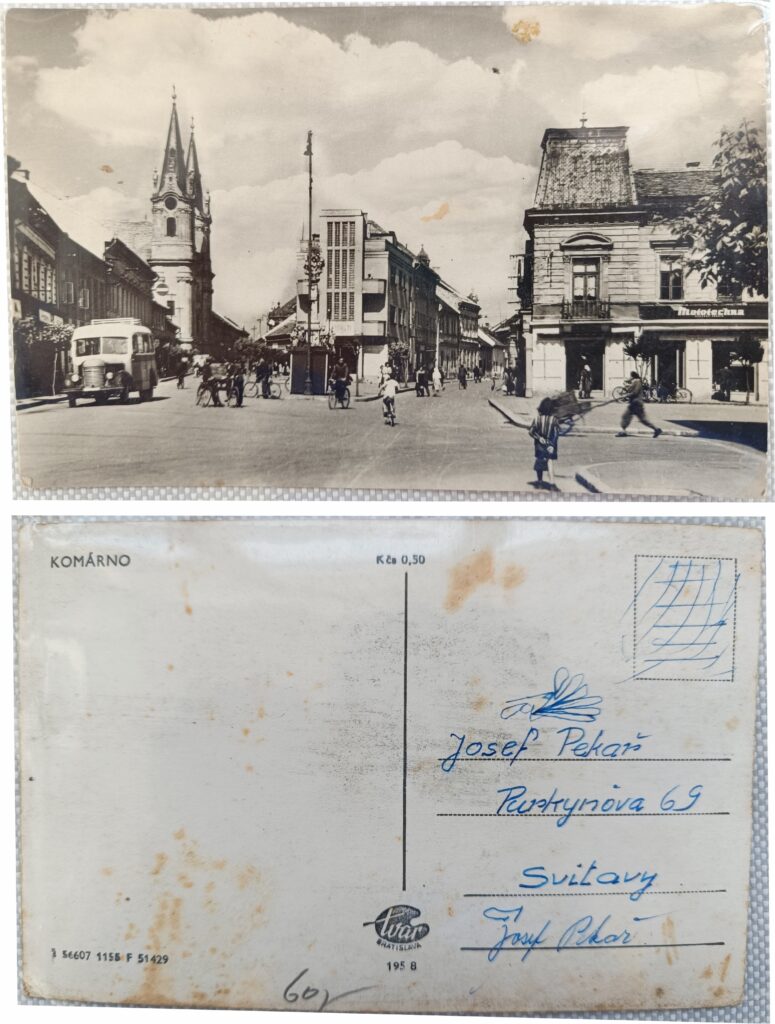 Mototechna
KOMÁRNO
Kčs 0,50
Josef Pekař
Purkynova 69
Svitavy
Josef Pekař
tvar
BRATISLAVA
195 8
56607 1155 F 51429
60,-